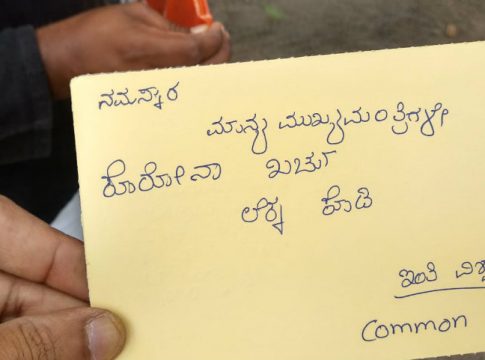 ನಮಸ್ಕಾರ
ಮಾನ್ಯ ಮುಖ್ಯಮಂತ್ರಿಗಳೇ
ಕೊರೋನಾ ಖರ್ಚು
ಲೆಕ್ಕ ಕೊಡಿ
ಇಂತಿ
Common